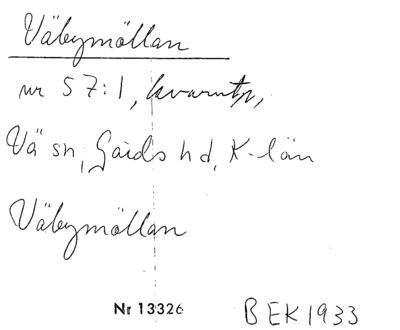 Väbymöllan
nr 57:1, kvarntp,
Vä sn, Gärds hd, K-län
Väbymöllan
Nr 13326 BEK1933